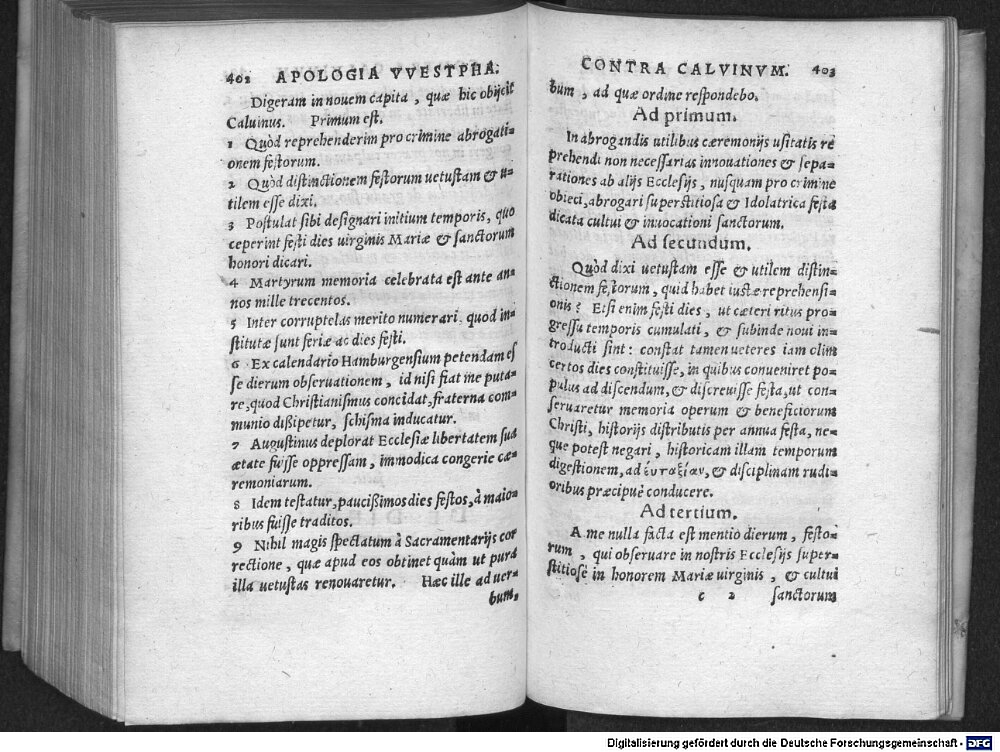 402 APOLOGIA VVESTPHA.
Digeram in nouem capita, quæ hic obijcit
Caluinus. Primum est.
1 Quòd reprehenderim pro crimine abrogati=
onem festorum.
2 Quòd distinctionem festorum uetustam & u=
tilem esse dixi.
3 Postulat sibi designari initium temporis, quo
ceperint festi dies uirginis Mariæ & sanctorum
honori dicari.
4 Martyrum memoria celebrata est ante an=
nos mille trecentos.
5 Inter corruptelas merito numerari, quod in=
stitutæ sunt feriæ ac dies festi.
6 Ex calendario Hamburgensium petendam es
se dierum obseruationem, id nisi fiat me puta=
re, quod Christianismus concidat, fraterna com=
munio dißipetur, schisma inducatur.
7 Augustinus deplorat Ecclesiæ libertatem sua
ætate fuisse oppressam, immodica congerie cæ=
remoniarum.
8 Idem testatur, paucißimos dies festos, à maio=
ribus fuisse traditos.
9 Nihil magis spectatum à Sacramentarijs cor
rectione, quæ apud eos obtinet quàm ut pura
illa uetustas renouaretur. Hæc ille ad uer=
bum,
CONTRA CALVINVM. 403
bum, ad quæ ordine respondebo.
Ad primum.
In abrogandis utilibus cæremonijs usitatis re
prehendi non necessarias innouationes & sepa=
rationes ab alijs Ecclesijs, nusquam pro crimine
obieci, abrogari superstitiosa & Idolatrica festa
dicata cultui & inuocationi sanctorum.
Ad secundum.
Quòd dixi uetustam esse & utilem distin=
ctionem festorum, quid habet iustæ reprehensi=
onis? Etsi enim festi dies, ut cæteri ritus pro=
gressu temporis cumulati, & subinde noui in=
troducti sint: constat tamen ueteres iam olim
certos dies constituisse, in quibus conueniret po=
pulus ad discendum, & discreuisse festa, ut con=
seruaretur memoria operum & beneficiorum
Christi, historijs distributis per annua festa, ne=
que potest negari, historicam illam temporum
digestionem, ad ἐυταξίαν, & disciplinam rudi=
oribus præcipuè conducere.
Ad tertium.
A me nulla facta est mentio dierum, festo=
rum, qui obseruare in nostris Ecclesijs super=
stitiosè in honorem Mariæ uirginis, & cultui
c 2 sanctorum
Digitalisierung gefördert durch die Deutsche Forschungsgemeinschaft - DFG